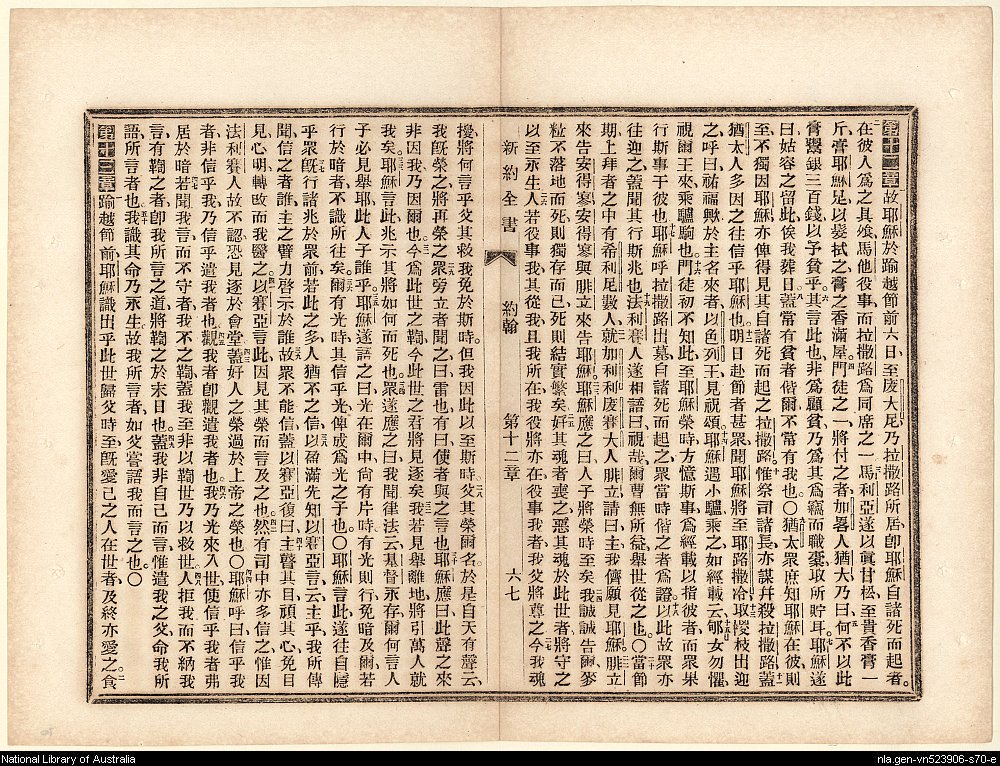 第十二章故耶穌於踰越節前六日至庋大尼乃拉撒路所居卽耶穌自諸死而起者。
在彼人爲之具飧馬他役事而拉撒路爲同席之一馬利亞遂以眞甘松至貴香膏一
斤膏耶穌足以髮拭之膏之香滿屋門徒之一將付之者加畧人猶大乃曰何不以此
膏鬻銀三百錢以予貧乎其言此也非爲顧貧乃爲其爲竊而職橐攻所貯耳耶穌遂
曰姑容之留此俟我葬日蓋常有貧者偕爾不常有我也○猶太衆庶知耶穌在彼則
至不獨因耶穌亦俾得見其自諸死而起之拉撒路惟祭司諸長亦謀幷殺拉撒路蓋
猶太人多因之往信乎耶穌也明日赴節者甚衆聞耶穌將至耶路撒冷取椶枝出迎
之呼曰祐福歟於主名來者以色列王見視頌耶穌遇小驢乘之如經載云郇女勿懼
視爾王來乘驢駒也門徒初不知此至耶穌榮時方憶斯事爲經載以指彼者而衆果
行斯事于彼也耶穌呼拉撒路出墓自諸死而起之衆當時偕之者爲證以此故衆亦
往迎之蓋聞其行斯兆也法利賽人遂相語曰視哉爾曹無所益舉世從之也○當節
期上拜者之中有希利尼數人就加利利庋賽大人腓立請曰主我儕願見耶穌腓立
來告安得寧安得寧與腓立來告耶穌耶穌應之曰人子將榮時至矣我誠誠告爾麥
粒不落地而死則獨存而已死則結實繁矣好其魂者喪之惡其魂於此世者將守之
以至永生人若役事我其從我且我所在我役將亦在役事我者我父將尊之今我魂
新約全書 約翰 第十二章 六七
擾將何言乎父其救我免於斯時但我因此以至斯時父其榮爾名於是自天有聲云
我旣榮之將再榮之衆旁立者聞之曰雷也有曰使者與之言也耶穌應曰此聲之來
非因我乃因爾也今爲此世之鞫今此世之君將見逐矣我若見舉離地將引萬人就
我矣耶穌言此兆示其將如何而死也衆遂應之曰我聞律法云基督永存爾何言人
子必見舉耶此人子誰乎耶穌遂語之曰光在爾中尙有片時有光則行免暗及爾若
行於暗者不識所往矣爾有光時其信乎光俾成爲光之子也○耶穌言此遂往自隱
乎衆旣行諸兆於衆前若此之多人猶不之信以盈滿先知以賽亞言云主乎我所傳
聞信之者誰主之臂力啓示於誰故衆不能信蓋以賽亞復曰主瞽其目頑其心免目
見心明轉改而我醫之以賽亞言此因見其榮而言及之也然有司中亦多信之惟因
法利賽人故不認恐見逐於會堂蓋好人之榮過於上帝之榮也○耶穌呼曰信乎我
者非信乎我乃信乎遣我者也觀我者卽觀遣我者也我乃光來入世使信乎我者弗
居於暗若聞我言而不守者我不之鞫蓋我至非以鞫世乃以救世人拒我而不納我
言有鞫之者卽我所言之道將鞫之於末日也蓋我非自己而言惟遣我之父命我所
語所言者也我識其命乃永生故我所言者如父嘗語我而言之也○
第十三章踰越節前耶穌識出乎此世歸父時至旣愛己之人在世者及終亦愛之食
National Library of Australia
nla.gen-vn523906-s70-e